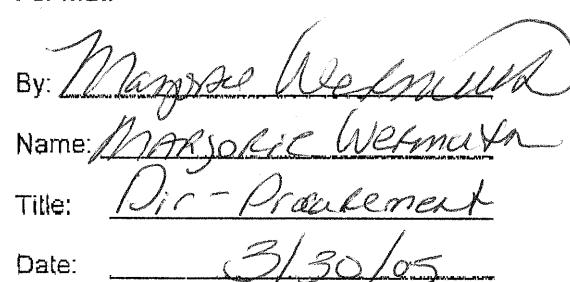 By: Marjorie Wermuth
Name: MARJORIE Wermuth
Title: Dir - Procurement
Date: 3/30/05